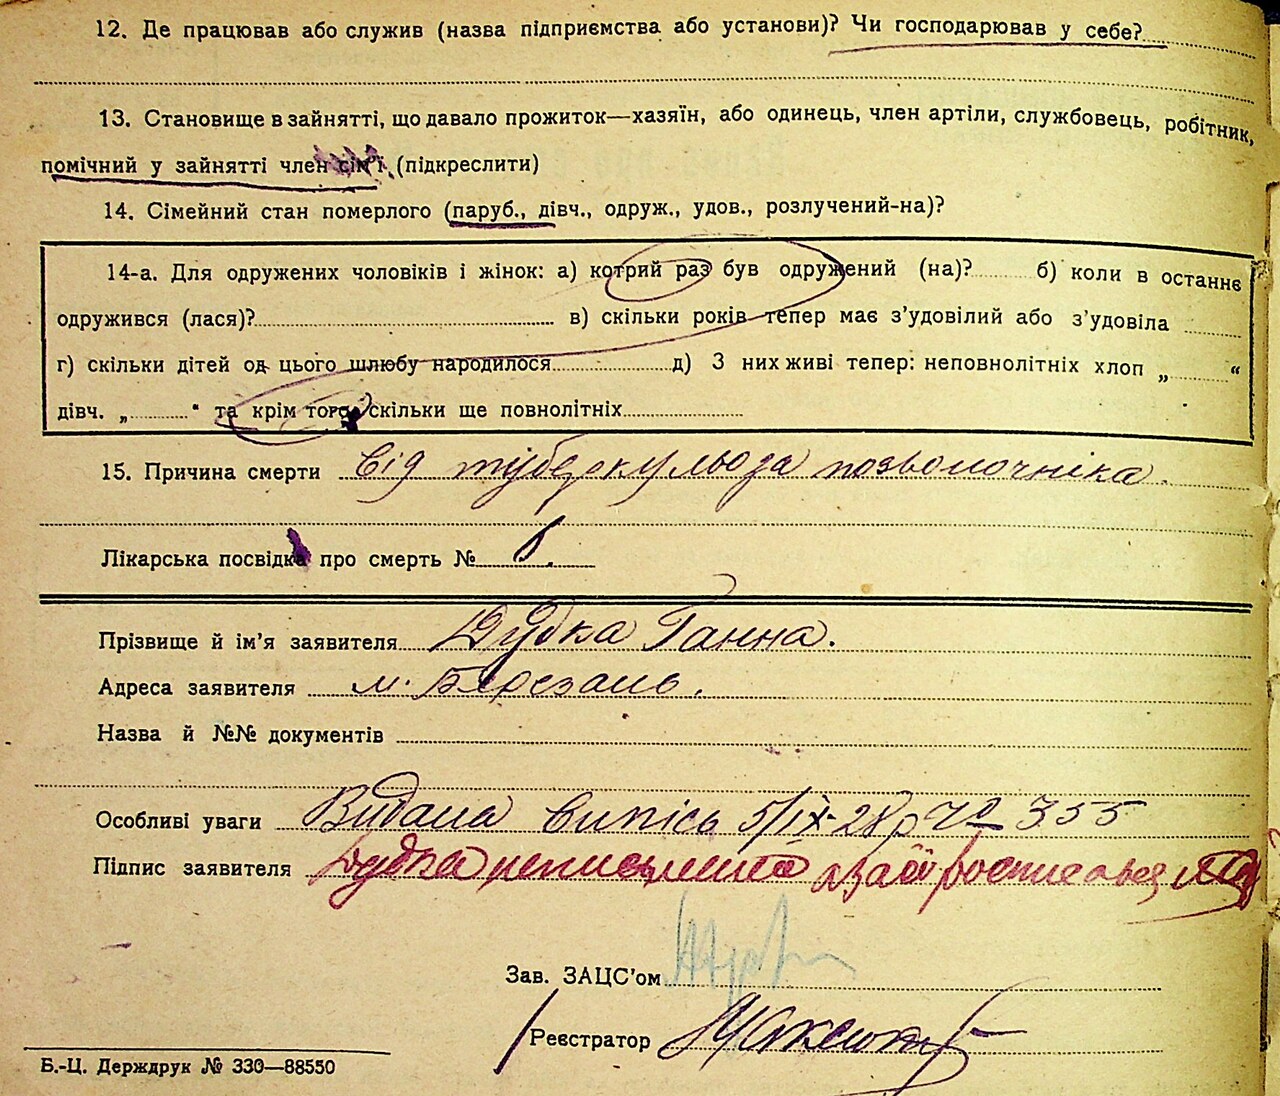 12. Де працював або служив (назва підприємства або установи)? Чи господарював у себе?
13. Становище в зайнятті, що давало прожиток—хазяїн, або одинець, член артіли, службовець, робітник,
помічний у зайнятті член сім'ї (підкреслити)
14. Сімейний стан померлого (паруб., дівч., одруж., удов., розлучений-на)?
14-а. Для одружених чоловіків і жінок: а) котрий раз був одружений (на)? б) коли в останнє
одружився (лася)? в) скільки років тепер має з'удовілий або з'удовіла
г) скільки дітей од цього шлюбу народилося д) З них живі тепер: неповнолітніх хлоп „ “
дівч. „ “ та крім того скільки ще повнолітніх
15. Причина смерти від туберкульоза позвоночніка.
Лікарська посвідка про смерть №
Прізвище й ім'я заявителя Дудка Ганна.
Адреса заявителя м. Березань.
Назва й №№ документів
Особливі уваги Видана випісь 5/IX-28р № 355
Підпис заявителя Дудка неписьмена за її росписався
Зав. ЗАЦС'ом
Реєстратор
Б.-Ц. Держдрук № 330—88550